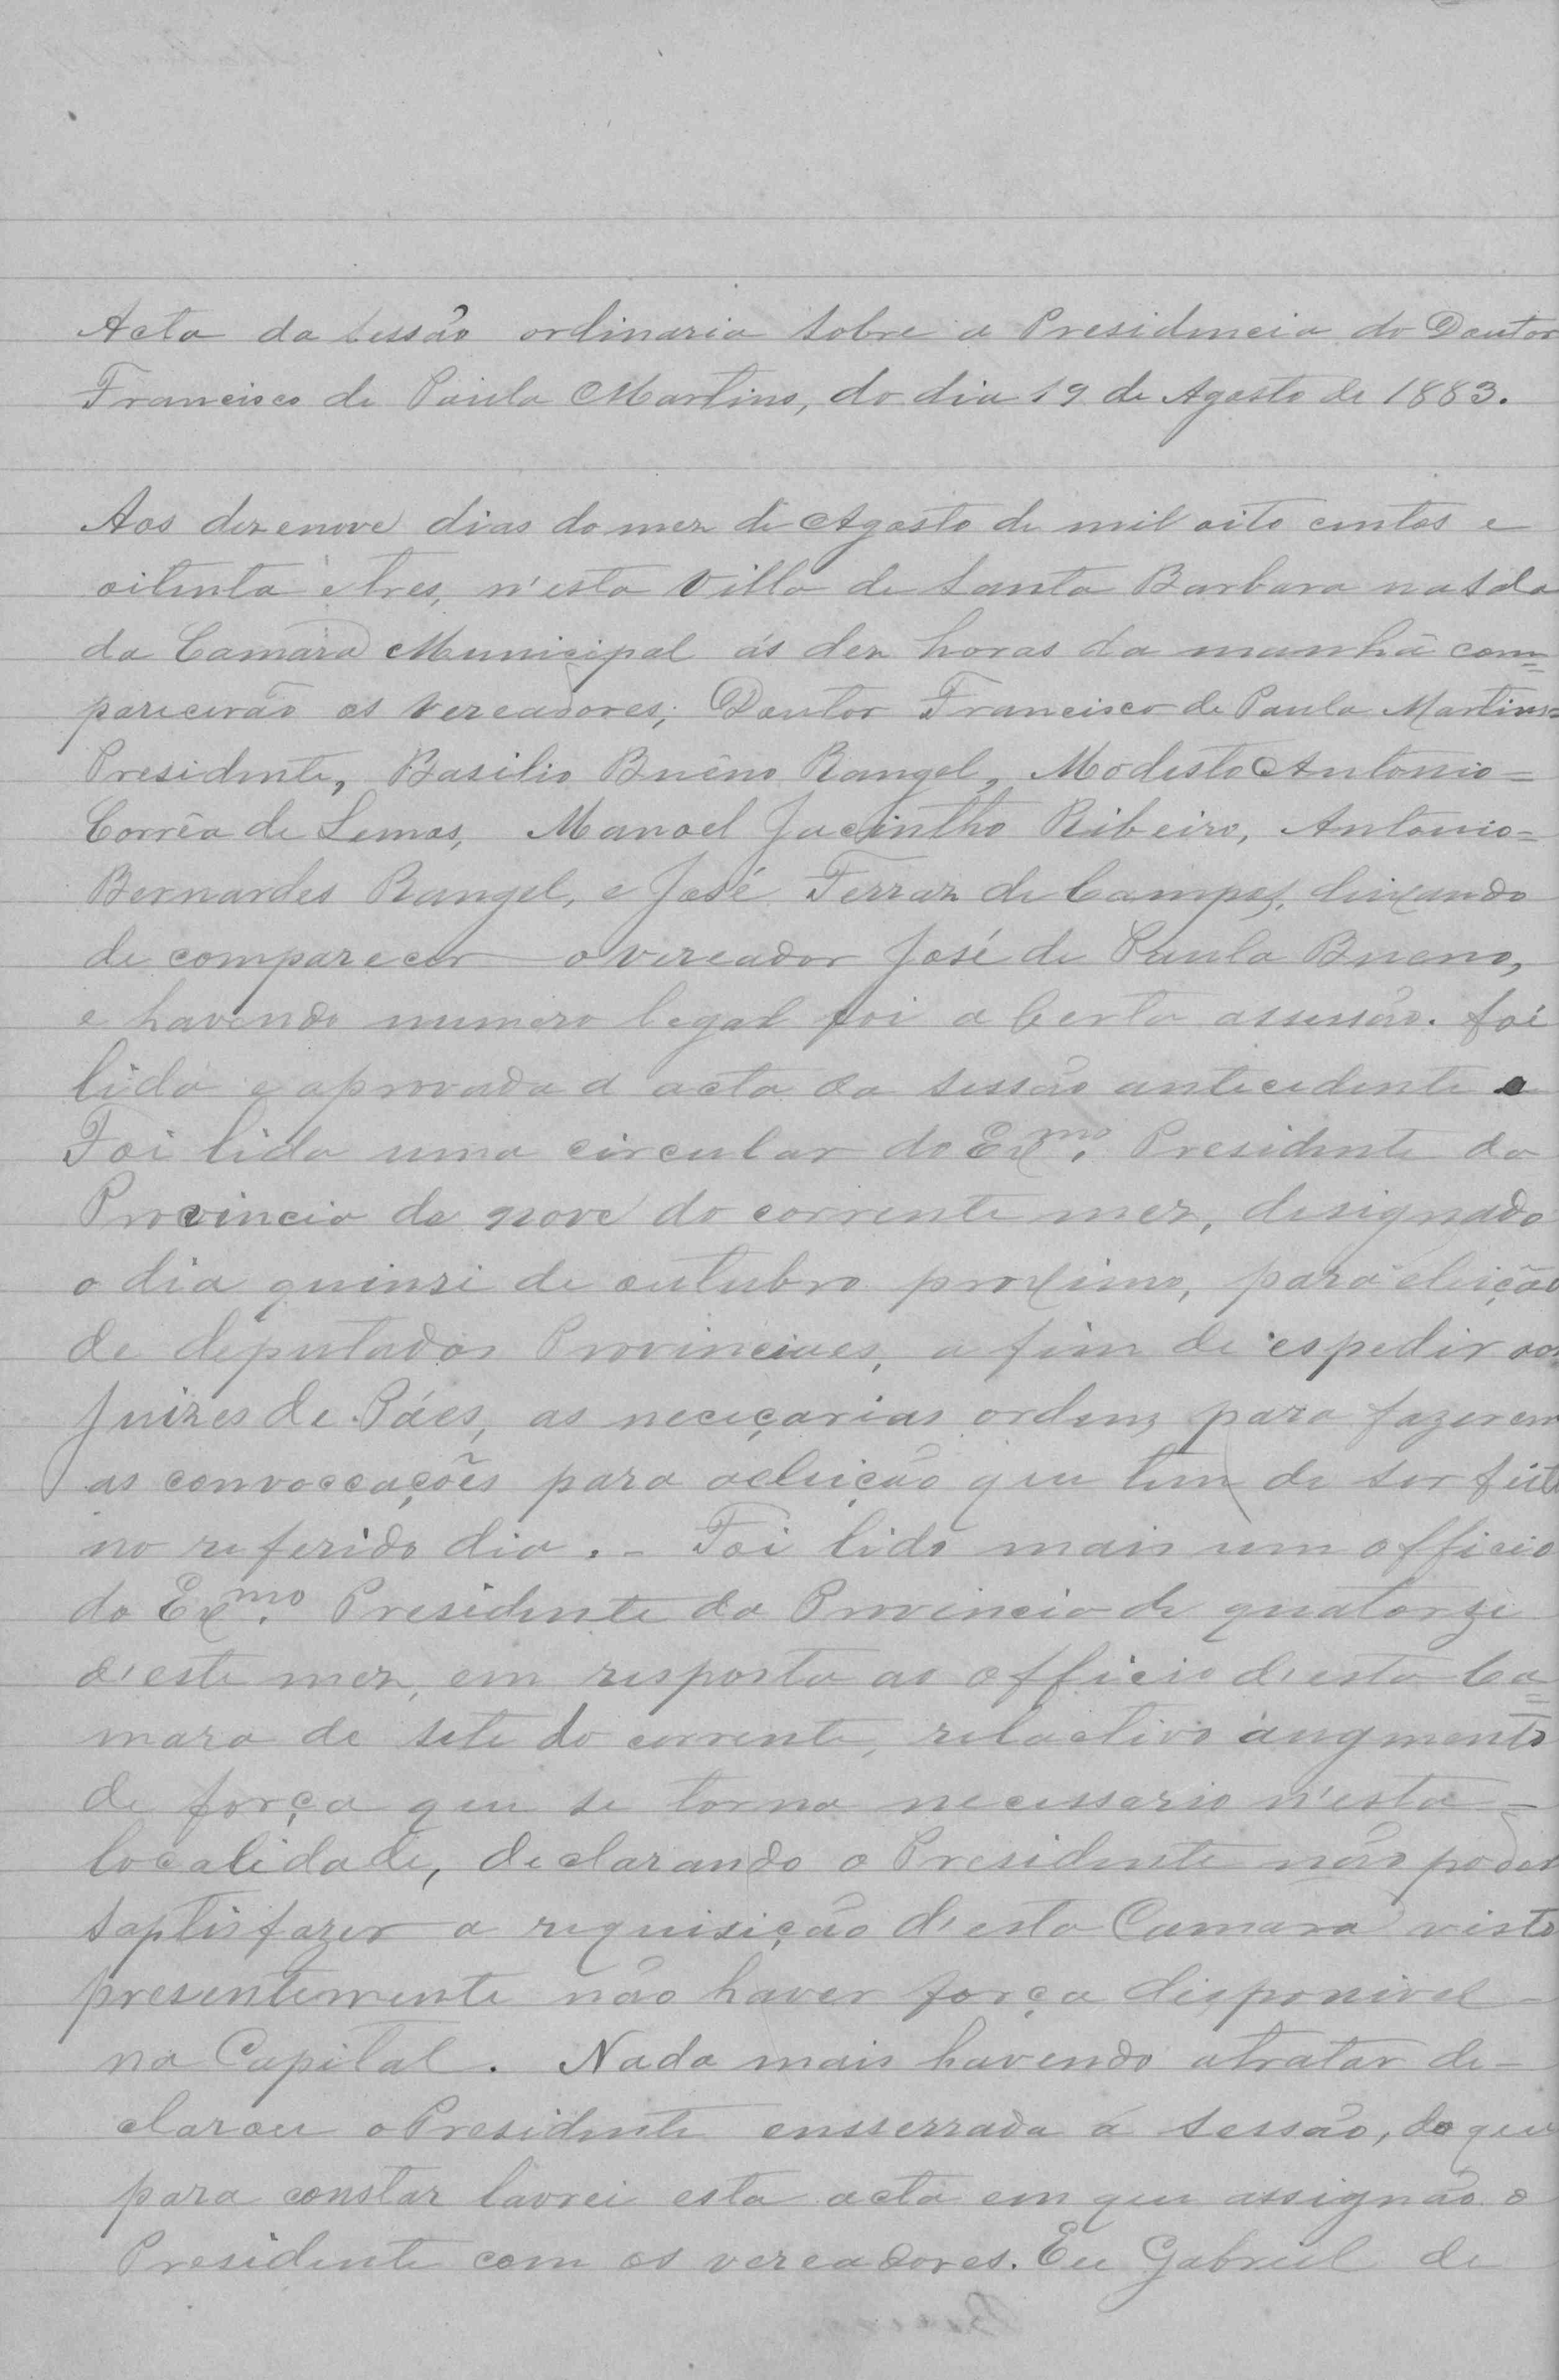 Acta da sessão ordinaria sobre a Presidencia do Doutor
Francisco de Paula Martins, do dia 19 de Agosto de 1883.
Aos dezenove dias do mez de Agosto de mil oito centos e
oitenta e tres, n'esta Villa de Santa Barbara na sala
da Camara Municipal ás dez horas da manhã com=
parecerão os Vereadores; Doutor Francisco de Paula Martins=
Presidente, Basilio Buêno Rangel, Modesto Antonio=
Corrêa de Lemos, Manoel Jacintho Ribeiro, Antonio=
Bernardes Rangel, e José Ferraz de Campos, deixando
de comparecer o vereador José de Paula Bueno,
e havendo numero legal foi aberta assessão. foi
lida e aprovada a acta da sessão antecedente.
Foi lida uma circular do Exmo. Presidente da
Provincia de nove do corrente mez, designado
o dia quinze de outubro proximo, para eleição
de deputados Provinciaes, a fim de espedir aos
Juizes de Páes, as neceçarias ordens para fazerem
as convoccações para aeleição que tem de ser feita
no referido dia. - Foi lido mais um officio
do Exmo. Presidente da Provincia de quatorze
d'este mez, em resposta ao officio d'esta Ca=
mara de sete do corrente, relactivo augmento
de força que se torna necessario n'esta -
localidade, declarando o Presidente não poder
saptisfazer a requisição d'esta Camara visto
presentemente não haver força disponivel -
na Capital. Nada mais havendo atratar de-
clarou o Presidente ensserrada a sessão, do que
para constar lavrei esta acta em que assignão o
Presidente com os vereadores. Eu Gabriel de